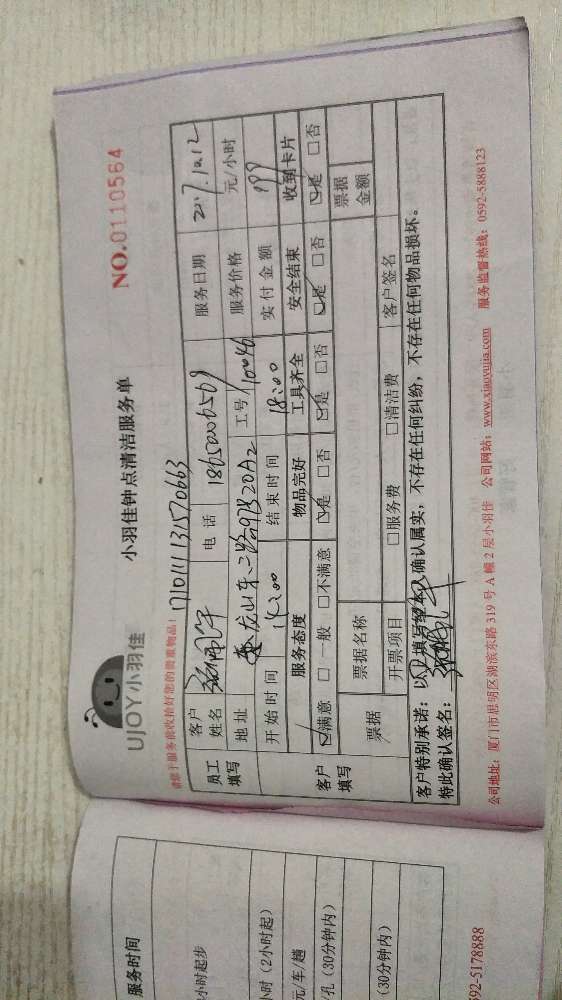 UJOY小羽佳
小羽佳钟点清洁服务单
NO.0110564
请您于服务前收拾好您的贵重物品!
171011131570663
员工填写
客户姓名
电话 18650006569
服务日期 2017.10.12
地址
龙山东二路97号320A2
工号 10046
服务价格 元/小时
开始时间 14:00
结束时间 18:00
实付金额 199
客户填写
服务态度 物品完好 工具齐全 安全结束 收到卡片
☑满意 □一般 □不满意 ☑是 □否 ☑是 □否 ☑是 □否 ☑是 □否
票据
票据名称
票据金额
开票项目 □服务费 □清洁费 客户签名
客户特别承诺:以上填写经本人确认属实,不存在任何纠纷,不存在任何物品损坏。
特此确认签名:
公司地址:厦门市思明区湖滨东路 319 号 A 幢 2 层小羽佳 公司网站:www.xiaoyujia.com 服务监督热线:0592-5888123
服务时间
小时起步
小时(2小时起)
元/车/趟
孔(30分钟内)
(30分钟内)
592-5178888